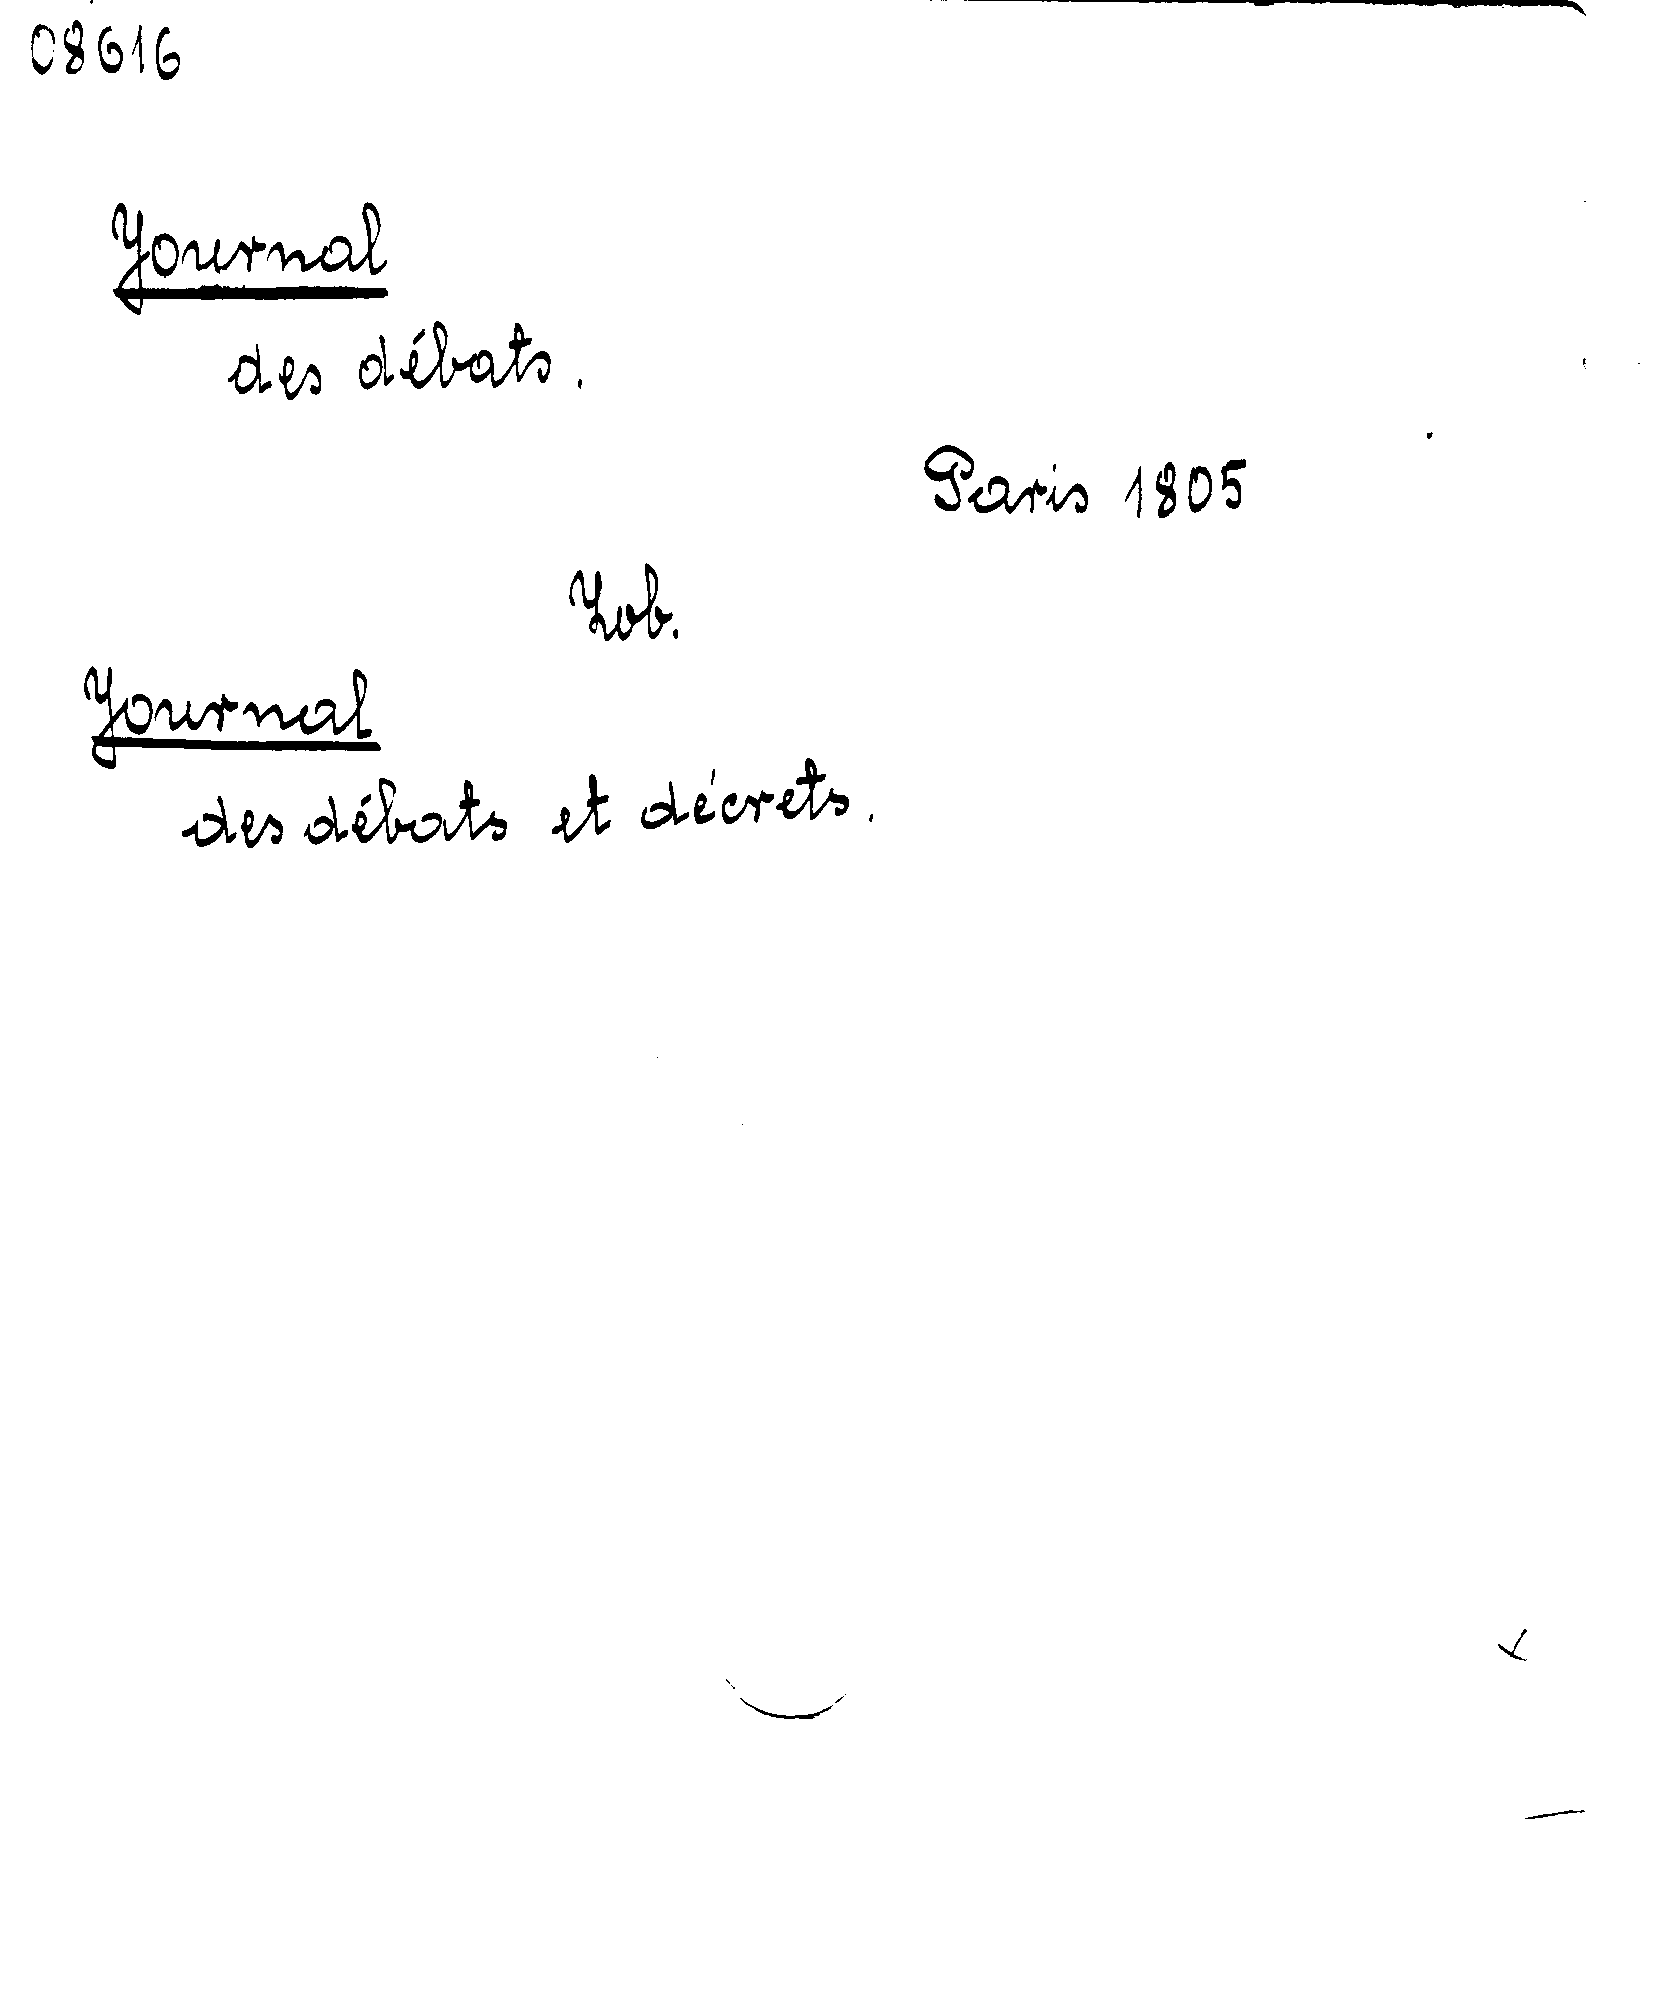 08616
Journal
des débats.
Paris 1805
Zob.
Journal
des débats et décrets.